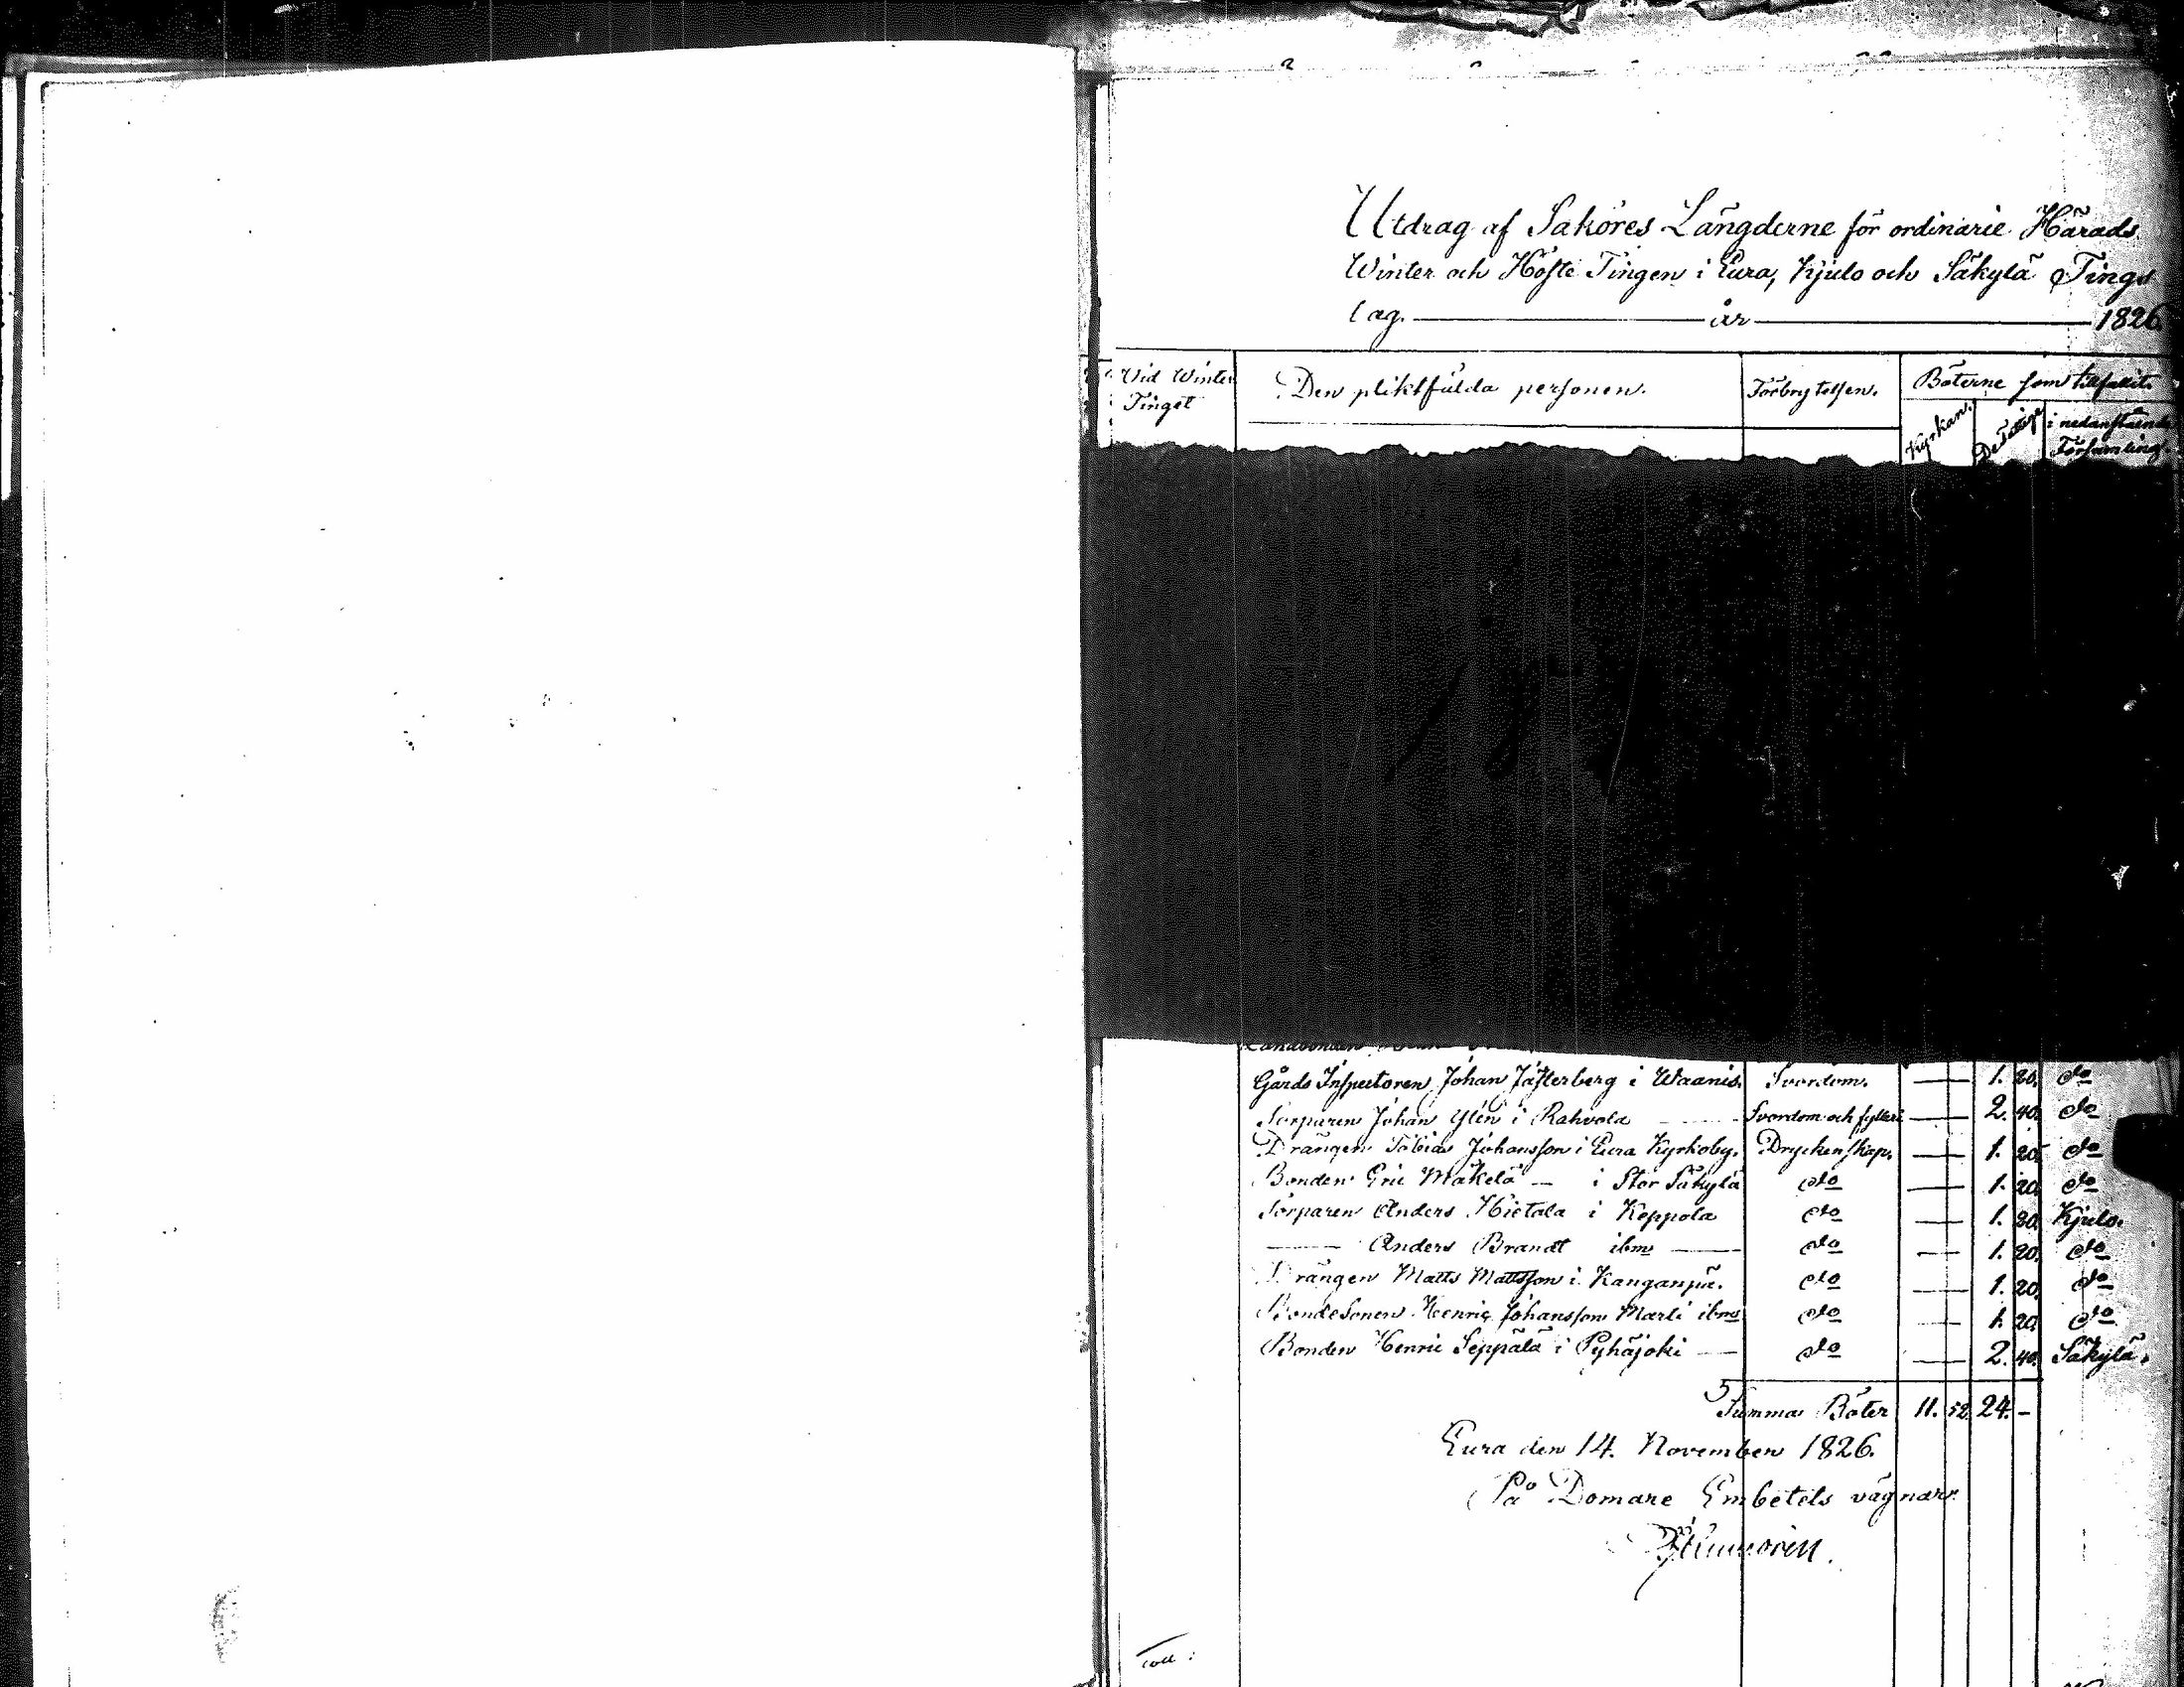 Utdrag af Saköres Längderne för ordinarie Härads
Winter och Höste Tingen i Eura, Kjulo och Säkylä Tings
lag. år 1826
Vid Winter Tinget Den pliktfälda personen. Förbrytelsen. Böterne som tillfallit
Kyrkan. De Fattige i nedanstående Församling.
Landbonden
Gårds Inspectoren Johan Jäfterberg i Waanis. Svordom. — 1. 20. do
Torparen Johan Glén i Rahvola Svordom och fylleri — 2. 40. do
Drängen Tobias Johansson i Eura Kyrkoby. Dryckenskap. — 1. 20. do
Bonden Eric Mäkelä — i Stor Säkylä do — 1. 20. do
Torparen Anders Hietala i Keppola do — 1. 20. Kjulo.
— Anders Brandt ibm — do — 1. 20. do
Drängen Matts Mattsson i Kanganpä. do — 1. 20. do
Bondesonen Henric Johansson Marli ibm do — 1. 20. do
Bonden Henric Seppälä i Pyhäjoki — do — 2. 40. Säkylä.
Summa Böter 11. 52. 24. -
Eura den 14. November 1826.
På Domare Embetets vägnar.